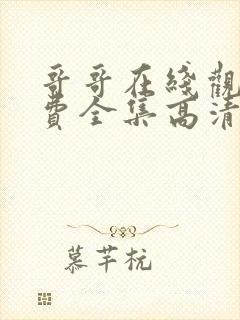 哥哥在綫觀
費全集高清
慕芊杭